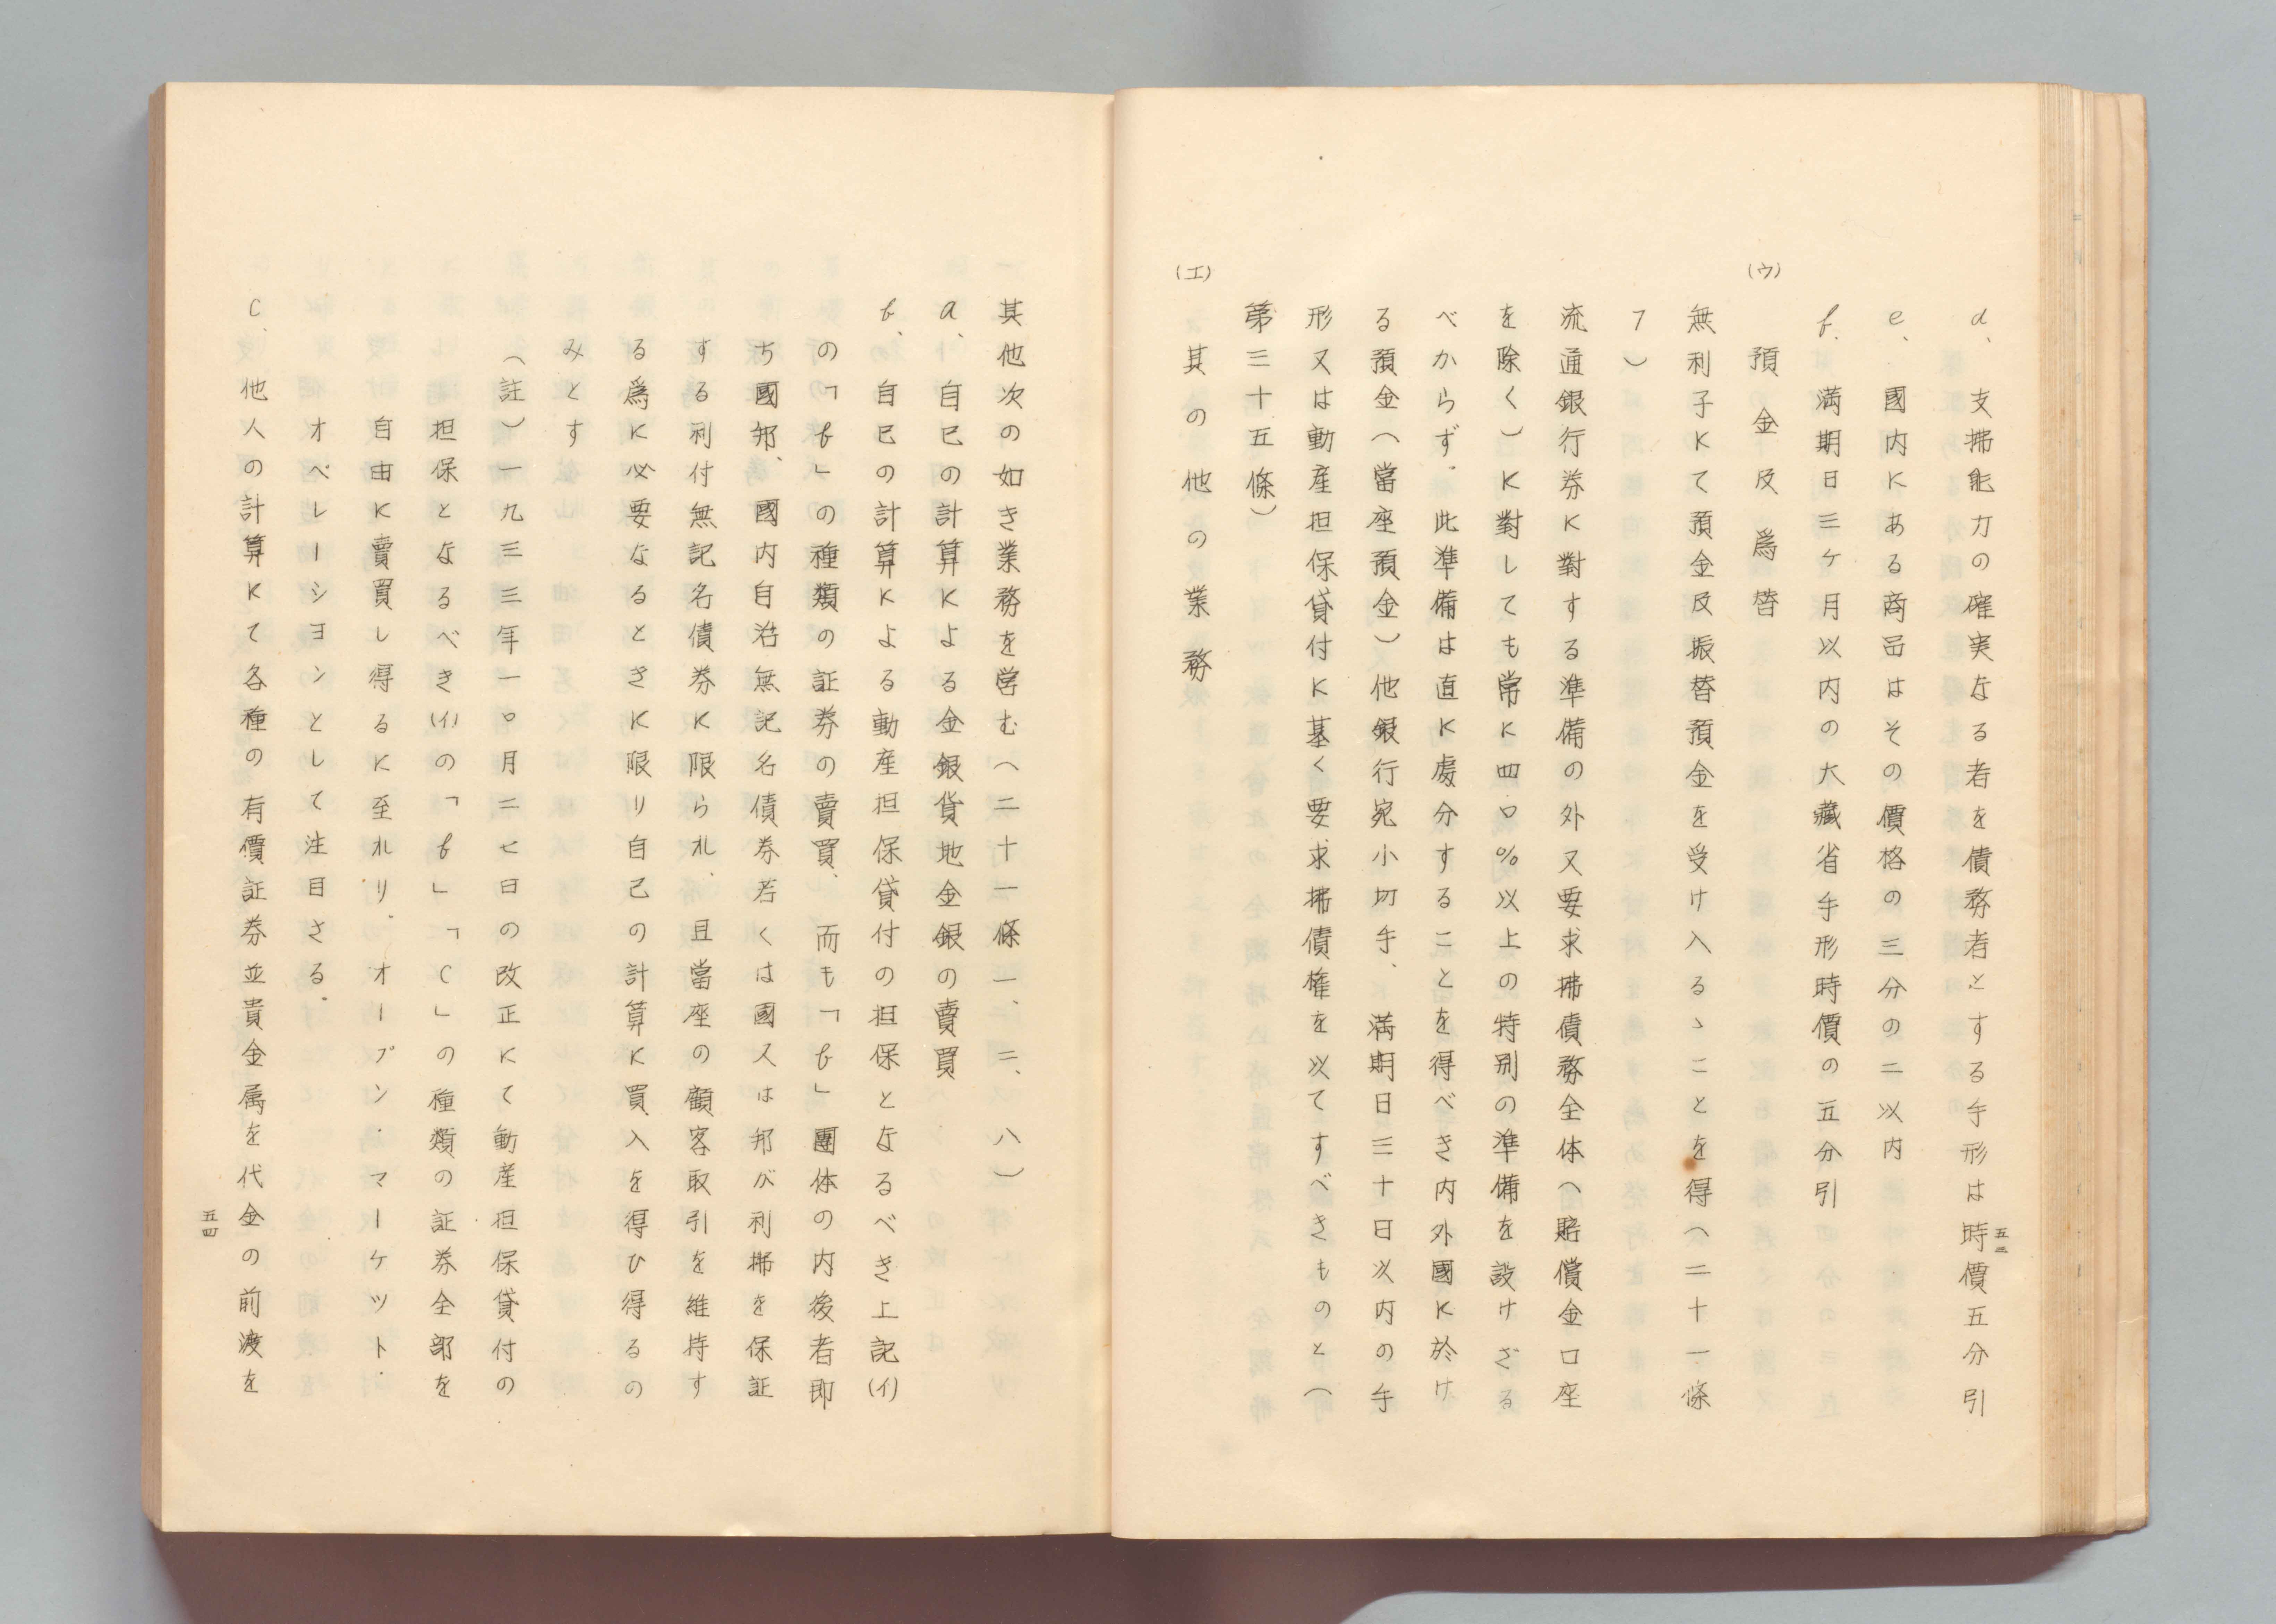 d、支拂能力の確実なる者を債務者とする手形は時價五分引
e、國内にある商品はその價格の三分の二以内
f、満期日三ヶ月以内の大藏省手形時價の五分引
(ウ)預金及爲替
無利子にて預金及振替預金を受け入るゝことを得(二十一條
7)
流通銀行券に對する準備の外又要求拂債務全体(賠償金口座
を除く)に對しても常に四〇%以上の特別の準備を設けざる
べからず.此準備は直に處分することを得べき内外國に於け
る預金(當座預金)他銀行宛小切手、満期日三十日以内の手
形又は動産担保貸付に基く要求拂債権を以てすべきものと(
第三十五條)
(エ)其の他の業務
五三
其他次の如き業務を営む(二十一條一、二、八)
a、自已の計算による金銀貨地金銀の賣買
b、自已の計算による動産担保貸付の担保となるべき上記(イ)
の「b」の種類の証券の賣買、而も「b」團体の内後者即
ち國邦、國内自治無記名債券若くは國又は邦が利拂を保証
する利付無記名債券に限られ、且當座の顧客取引を維持す
る爲に必要なるときに限り自己の計算に買入を得ひ得るの
みとす
(註)一九三三年一〇月二七日の改正にて動産担保貸付の
担保となるべき(イ)の「b」「C」の種類の証券全部を
自由に賣買し得るに至れり.オープン・マーケツト・
オペレーシヨンとして注目さる.
C、他人の計算にて各種の有價証券並貴金属を代金の前渡を
五四